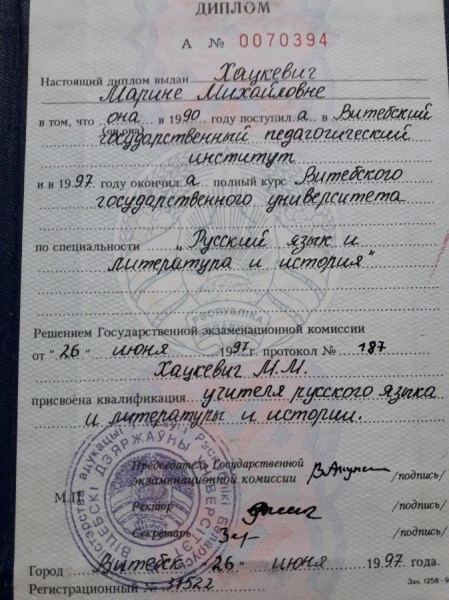 ДИПЛОМ
А № 0070394
Настоящий диплом выдан Хацкевич
Марине Михайловне
в том, что она в 1990 году поступила в Витебский
(он, она)
государственный педагогический
институт
и в 1997 году окончила полный курс Витебского
государственного университета
по специальности „Русский язык и
литература и история"
РЭСПУБЛІКА
Решением Государственной экзаменационной комиссии
от "26" июня 1997 г. протокол № 187
Хацкевич М.М.
присвоена квалификация учителя русского языка
и литературы и истории.
Председатель Государственной
экзаменационной комиссии /подпись/
М.П.
Ректор /подпись/
Секретарь /подпись/
Город Витебск "26" июня 1997 года.
Регистрационный № 37522
Зак. 1258-9
ВІЦЕБСКІ ДЗЯРЖАЎНЫ